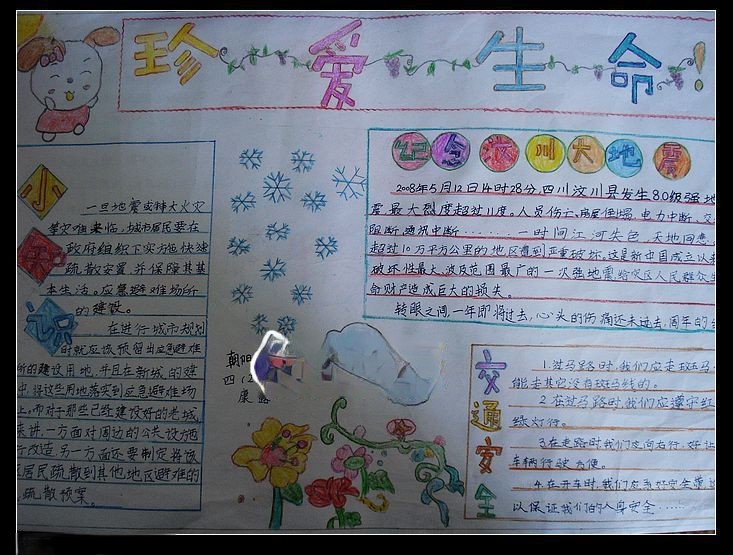 珍爱生命!
小知识
一旦地震或特大火灾
等灾难来临,城市居民要在
政府组织下实施快速
疏散安置,并保障其基
本生活。应急避难场所
的建设。
在进行城市规划
时就应该预留出应急避难
所的建设用地,并且在新城的建
中,将这些用地落实到应急避难场
上。而对于那些已经建设好的老城
来讲,一方面对周边的公共设施
行改造,另一方面还要制定将该
居民疏散到其他地区避难的
疏散预案。
朝阳
四(2
康露
纪念汶川大地震
2008年5月12日14时28分,四川汶川县发生8.0级强地
震,最大烈度超过11度。人员伤亡,房屋倒塌,电力中断,交
阻断,通讯中断……一时间江河失色,天地同悲,
超过10万平方公里的地区遭到严重破坏。这是新中国成立以来
破坏性最大,波及范围最广的一次强地震,给灾区人民群众生
命财产造成巨大的损失。
转眼之间,一年即将过去,心头的伤痛还未过去,周年的
交通安全
1.过马路时,我们应走斑马
能去其它没有斑马线的。
2.在过马路时我们应遵守红
绿灯行。
3.在走路时我们应向右行,好让
车辆行驶方便。
4.在开车时,我们应系好安全带,
以保证我们的人身安全……